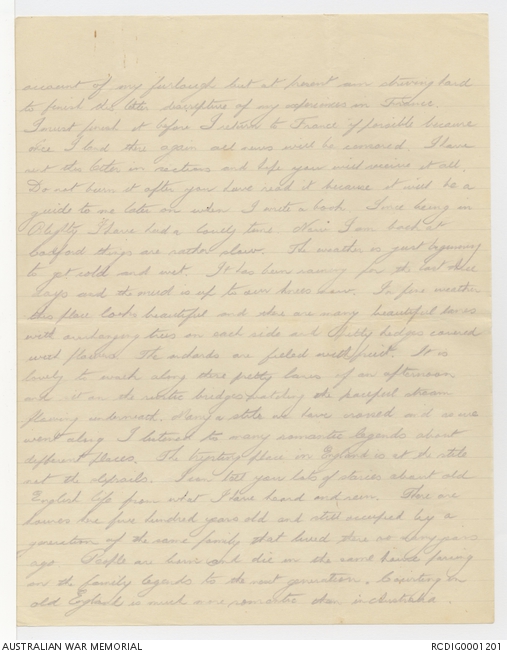 account of my furlough but at present am striving hard
to finish the letter descriptive of my experiences in France.
I must finish it before I return to France if possible because
once I land there again all news will be censored. I have
sent this letter in sections and hope you will receive it all.
Do not burn it after you have read it because it will be a
guide to me later on when I write a book. Since being in
Blighty I have had a lovely time. Now I am back at
things are rather slow. The weather is just beginning
to get cold and wet. It has been raining for the last three
days and the mud is up to our knees now. In fine weather
this place looks beautiful and there are many beautiful lanes
with overhanging trees on each side and pretty hedges covered
with flowers. The orchards are filled with fruit. It is
lovely to walk along these pretty lanes of an afternoon
and sit on the rustic bridges watching the peaceful stream
flowing underneath. Many a stile we have crossed and as we
went along I listened to many romantic legends about
different places. The trysting place in England is at the stile
not the sliprails. I can tell you lots of stories about old
English life from what I have heard and seen. There are
houses here five hundred years old and still occupied by a
generation of the same family that lived there so many years
ago. People are born and die in the same house passing
on the family legends to the next generation. Courting in
old England is much more romantic than in Australia.
AUSTRALIAN WAR MEMORIAL
RCDIG0001201